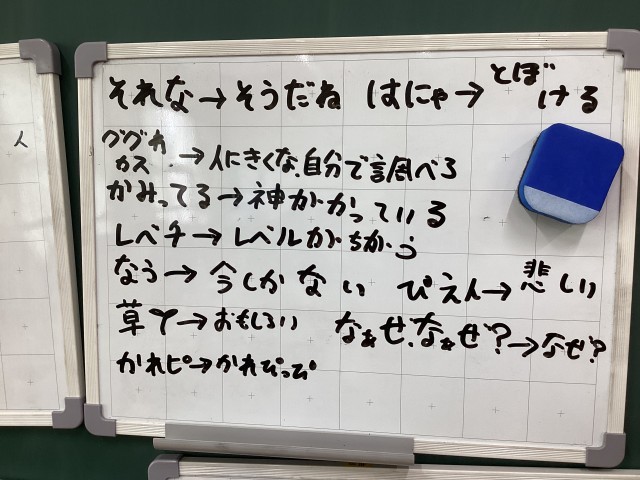 それな→そうだね はにゃ→とぼける
ググれカス.→人にきくな、自分で調べろ
かみってる→神がかっている
レベチ→レベルがちがう
なう→今しかない ぴえん→悲しい
草→おもしろい なぁぜ、なぁぜ?→なぜ?
かれピ→かれぴっぴ
人